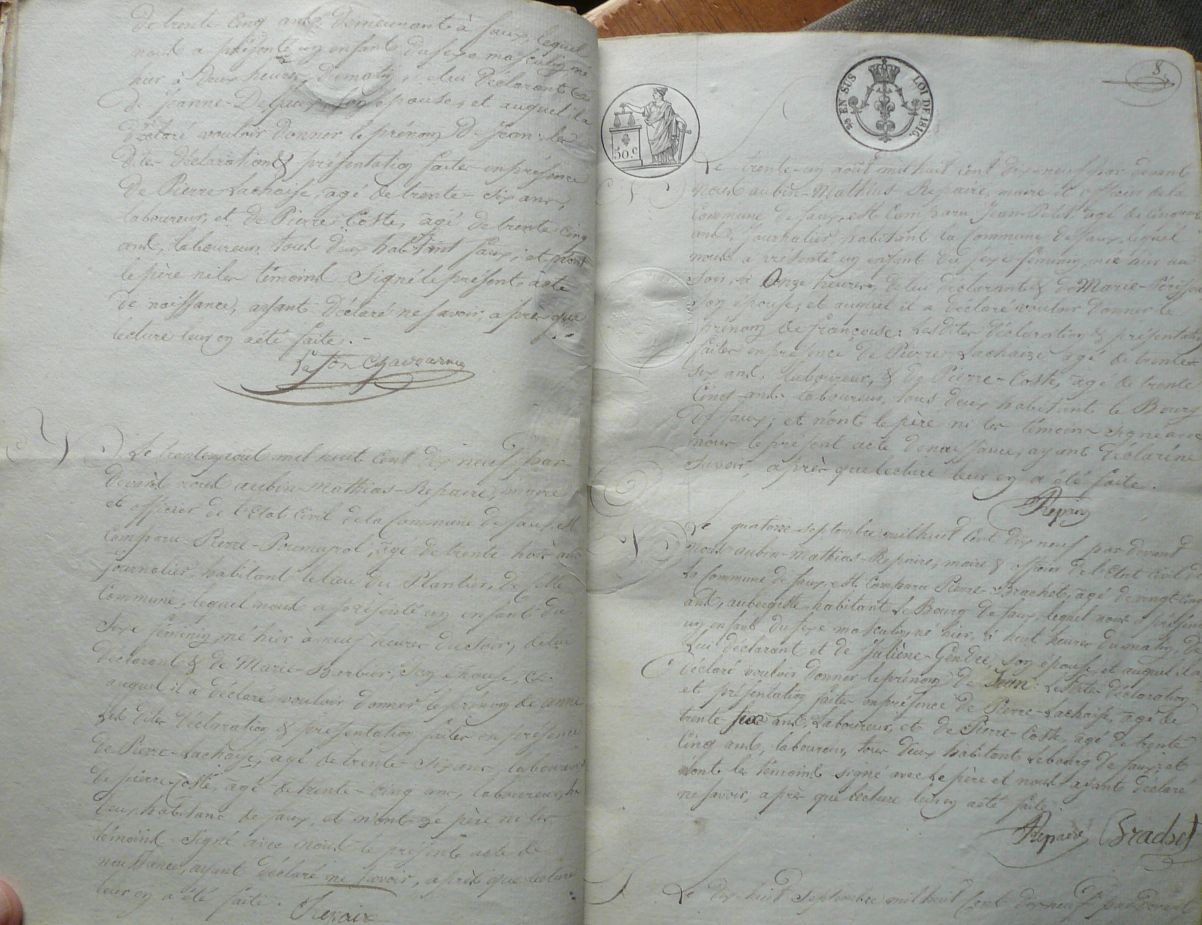 de trente cinq ans demeurant à faux, lequel
nous a présenté un enfant du sexe masculin, né
hier à deux heures du matin, de lui déclarant &
de Jeanne Deguy, son épouse, et auquel il a
déclaré vouloir donner le prénom de Jean; les
dites déclaration & présentation faites en présence
de Pierre Lachaise, agé de trente-six ans,
laboureur, et de Pierre Coste, agé de trente cinq
ans, laboureur, tous deux habitant faux; et n'ont
le père ni les témoins signé le présent acte
de naissance, ayant déclaré ne savoir, après que
lecture leur en a été faite.
Le trente aout mil huit cent dix neuf par
devant nous aubin-Mathias-Repaire, maire
et officier de l'Etat Civil de la Commune de faux, est
Comparu Pierre agé de trente trois ans
journalier, habitant le lieu du Plantier, de
Commune, lequel nous a présenté un enfant du
sexe féminin, né hier à neuf heures du soir, de lui
déclarant & de Marie Barbier, son épouse, &
auquel il a déclaré vouloir donner le prénom de anne
Les dites déclaration & présentation faites en présence
de Pierre Lachaise, agé de trente-six ans, laboureur,
de pierre Coste, agé de trente-cinq ans, laboureur,
deux habitant de faux, et n'ont le père ni les
témoins signé avec nous le présent acte de
naissance, ayant déclaré ne savoir, après que lecture
leur en a été faite.
Repaire
8
50.c
EN SUS
LOI DE 1816.
Le trente-un août mil huit cent dix neuf par devant
Nous aubin-Mathias-Repaire, maire & officier de la
Commune de faux, est Comparu Jean Petit, agé de cinquante
ans, journalier, habitant la Commune de faux, lequel
nous a présenté un enfant du sexe féminin, né hier au
soir, à Onze heures, de lui déclarant & de Marie-Thérèse
son épouse, et auquel il a déclaré vouloir donner le
prénom de françoise; Les dites déclaration & présentation
faites en présence de Pierre Lachaize agé de trente
six ans, laboureur, & de Pierre-Coste, agé de trente
Cinq ans, laboureur, tous deux habitant le Bourg
de faux; et n'ont le père ni les témoins signé avec
nous le présent acte de naissance, ayant déclaré ne
savoir, après que lecture leur en a été faite.
Repaire
Le quatorze septembre mil huit cent dix neuf par devant
nous aubin-Mathias-Repaire, maire & officier de l'Etat civil de
la Commune de faux est Comparu Pierre Brachet, agé de vingt-cinq
ans, aubergiste habitant le Bourg de faux, lequel nous a présenté
un enfant du sexe masculin né hier, à huit heures du matin, de
Lui déclarant et de Juliène-Gendre, son épouse et auquel il a
déclaré vouloir donner le prénom de Jean. Lesdites déclaration
et présentation faites en présence de Pierre Lachaise, agé de
trente six ans Laboureur, et de Pierre-Coste agé de trente
Cinq ans, laboureur, tous deux habitant le bourg de faux; et
n'ont les témoins signé avec le père et nous ayant déclaré
ne savoir, après que lecture leur en a été faite.
Repaire Brachet
Le dix huit septembre mil huit Cent dix neuf par devant